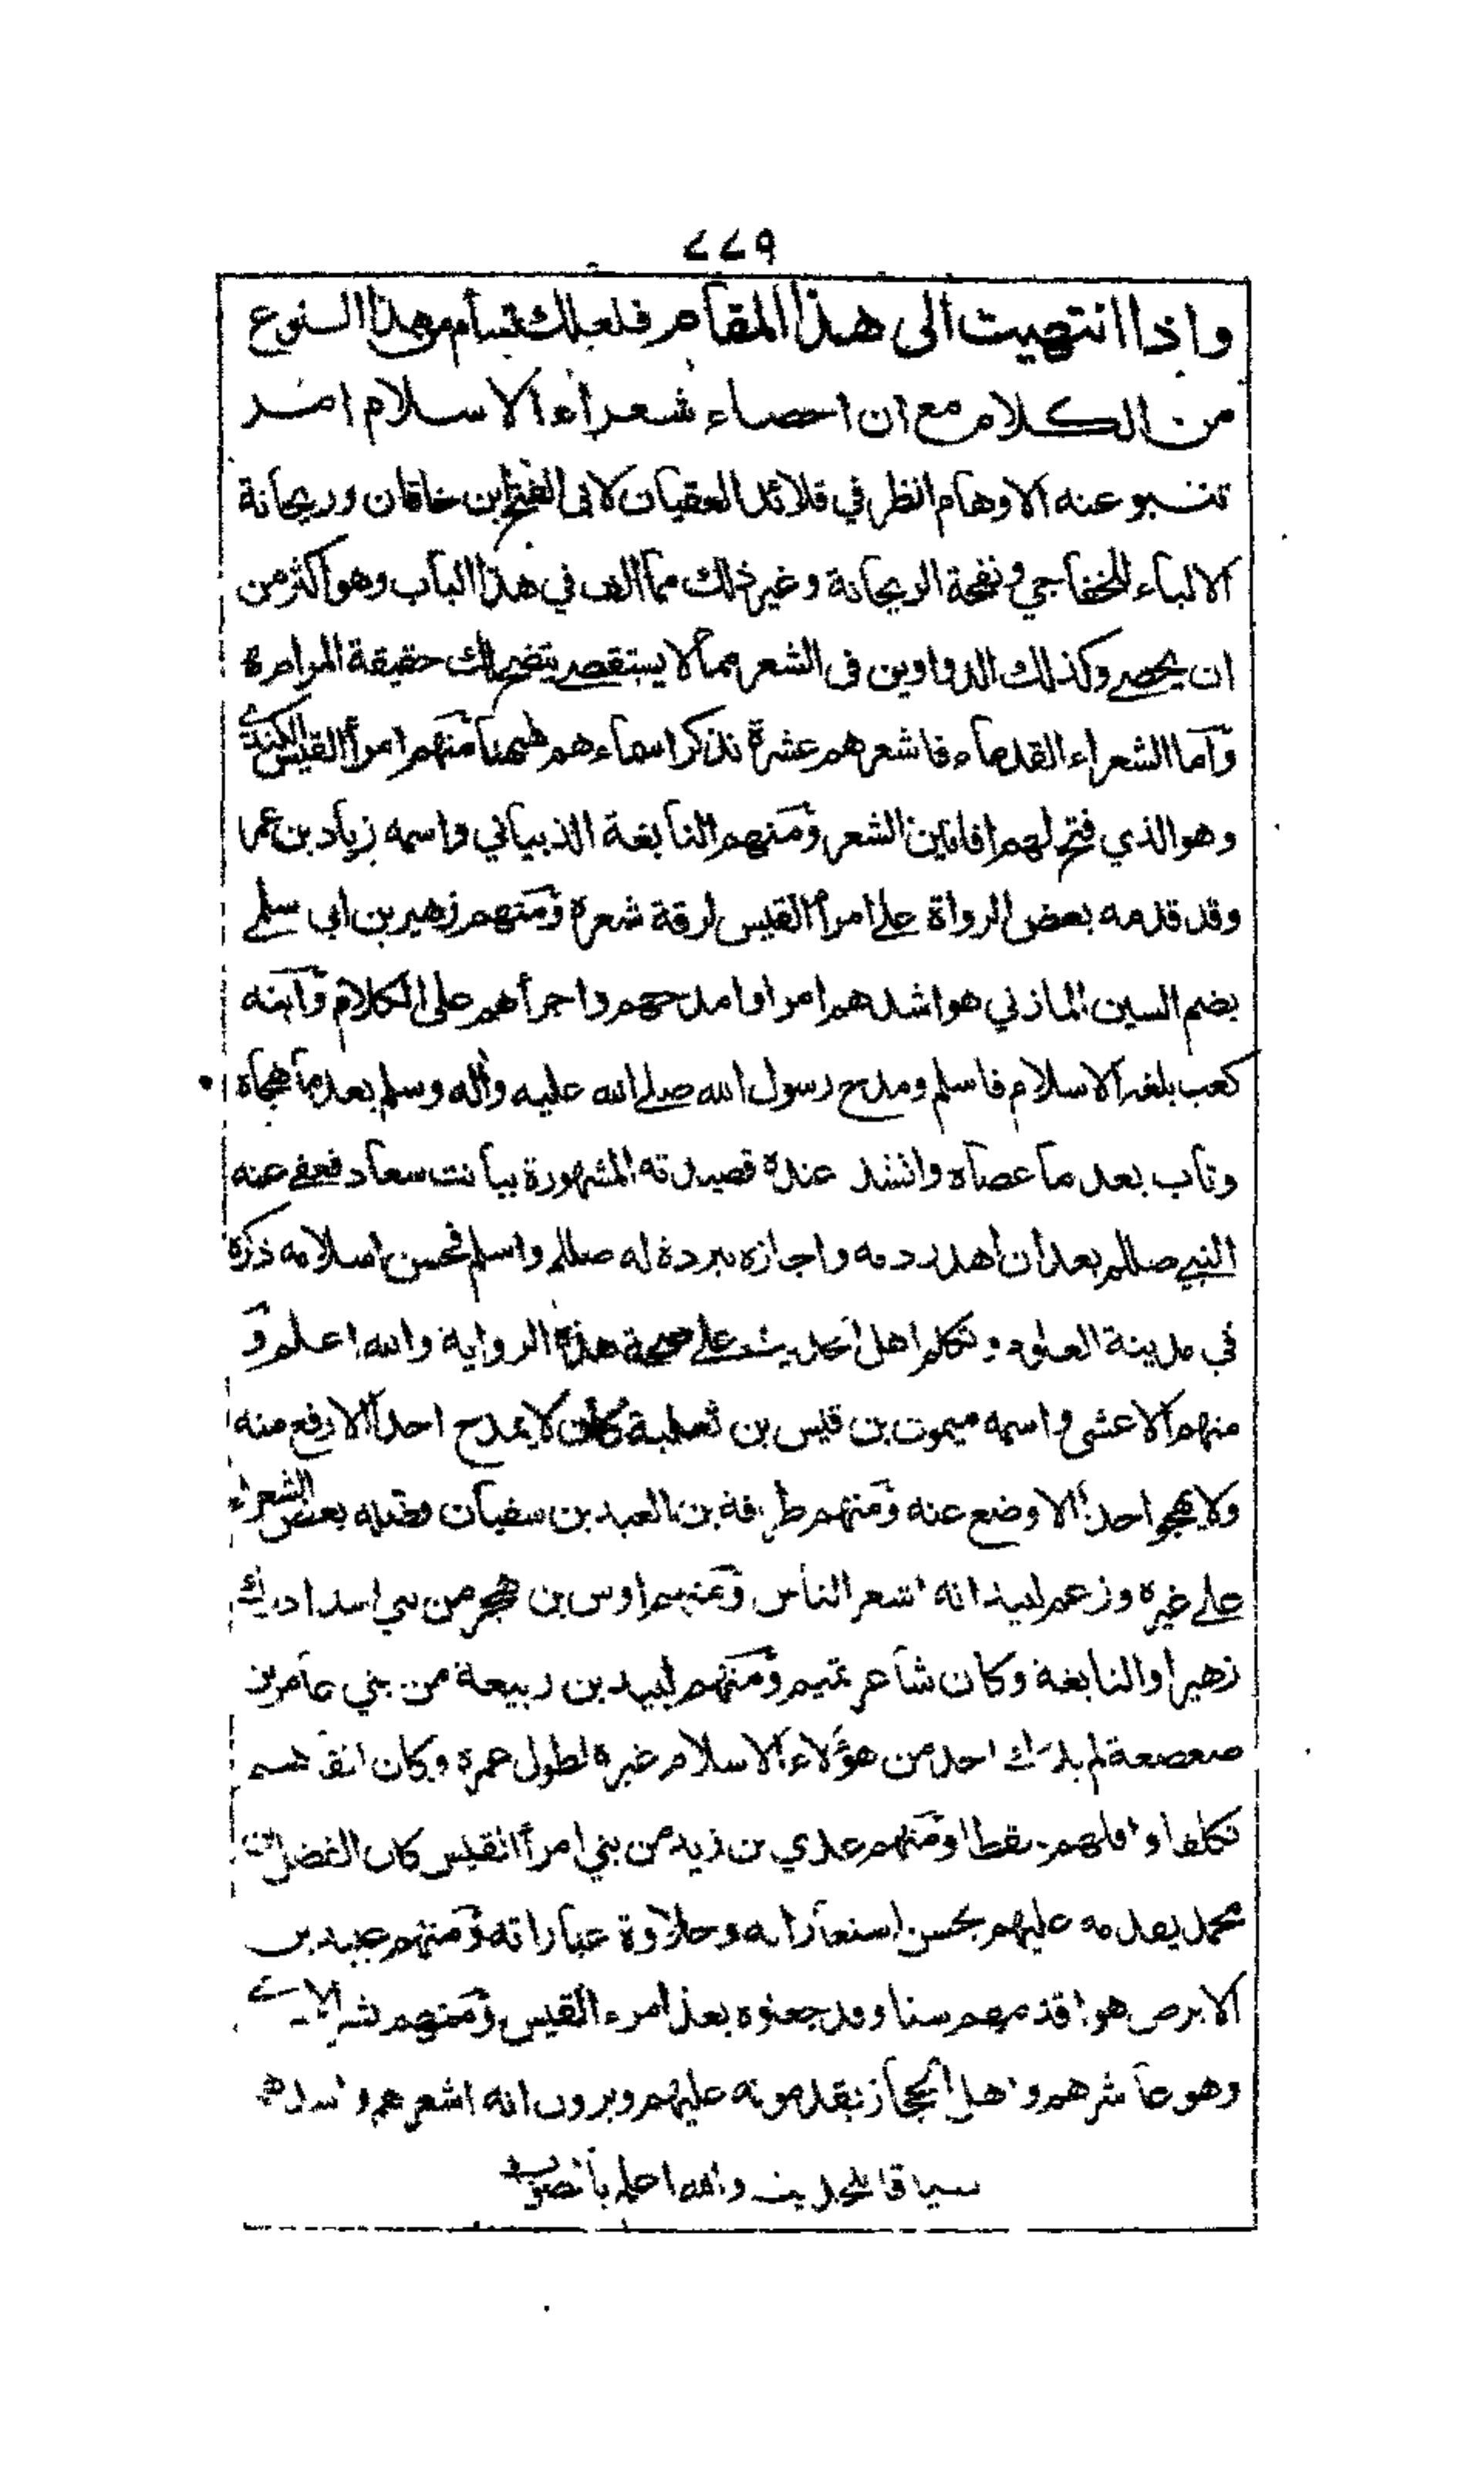 ٢٢٩
واذا انتهيت الى هذا المقام فلعلك تسأم من هذا النوع
من الكلام مع ان احصاء شعراء الاسلام امر
تنبو عنه الاوهام انظر في قلائد العقيان لابي الفتح ابن خاقان وريحانة
الالباء للخفاجي ونفحة الريحانة وغير ذلك مما الف في هذا الباب وهو اكثر من
ان يحصى وكذلك الدواوين في الشعر مما لا يستقصى يتضح لك حقيقة المرام
وآما الشعراء القدماء فاشعرهم عشرة نذكر اسماءهم ههنا منهم امرأ القيس الكندي
وهو الذي فتح لهم افانين الشعر ومنهم النابغة الذبياني واسمه زياد بن عمر
وقد قدمه بعض الرواة على امرأ القيس لرقة شعره ومنهم زهير بن ابي سلمى
بضم السين المازني هو اشدهم امرا وامدحهم واجرأهم على الكلام وابنه
كعب بلغه الاسلام فاسلم ومدح رسول الله صلى الله عليه وآله وسلم بعد ما هجاه
وتاب بعد ما عصاه وانشد عنده قصيدته المشهورة ببانت سعاد فعفى عنه
النبي صللم بعد ان اهدر دمه واجازه ببردة له صللم واسلم فحسن اسلامه ذكره
في مدينة العلوم وتكلم اهل الحديث على صحة هذه الرواية والله اعلم و
منهم الاعشى واسمه ميمون بن قيس بن ثعلبة كان لا يمدح احدا الا رفع منه
ولا يهجو احدا الا وضع عنه ومنهم طرفة بن العبد بن سفيان فضله بعض الشعراء
على غيره وزعم لبيد انه اشعر الناس ومنهم اوس بن حجر من بني اسد ادرك
زهيرا والنابغة وكان شاعر تميم ومنهم لبيد بن ربيعة من بني عامر بن
صعصعة لم يدرك احد من هؤلاء الاسلام غيره لطول عمره وكان
تكلفا واقلهم سقطا ومنهم عدي بن زيد من بني امرأ القيس كان الفضل بن
محمد يقدمه عليهم بحسن استعاراته وحلاوة عباراته ومنهم عبيد بن
الابرص هو اقدمهم سنا وقد جعلوه بعد امرء القيس ومنهم
وهو عاشرهم واهل الحجاز يقدمونه عليهم ويرون انه اشعرهم
سياقا للحديث والله اعلم بالصواب